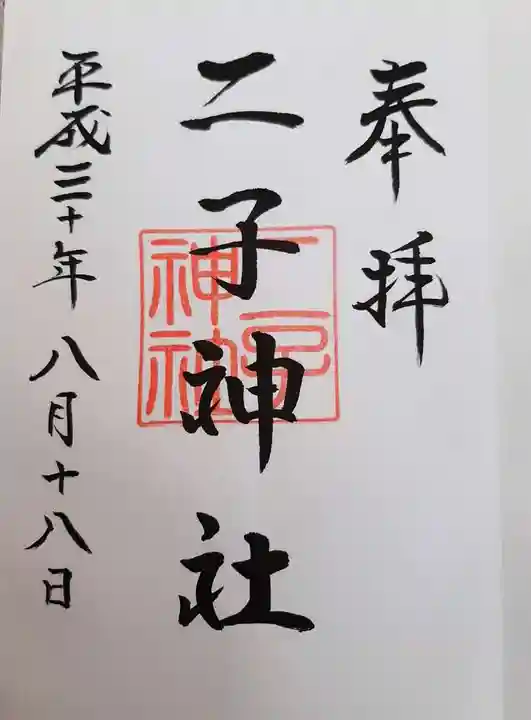 奉拝
二子神社
二子
神社
平成三十年八月十八日